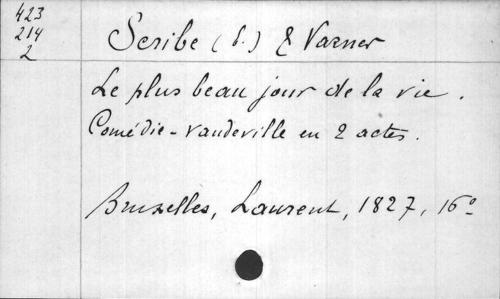 423
214
2
Scribe (E.) & Varner
Le plus beau jour de la vie.
Comédie-vaudeville en 2 actes.
Bruxelles, Laurent, 1827, 16°